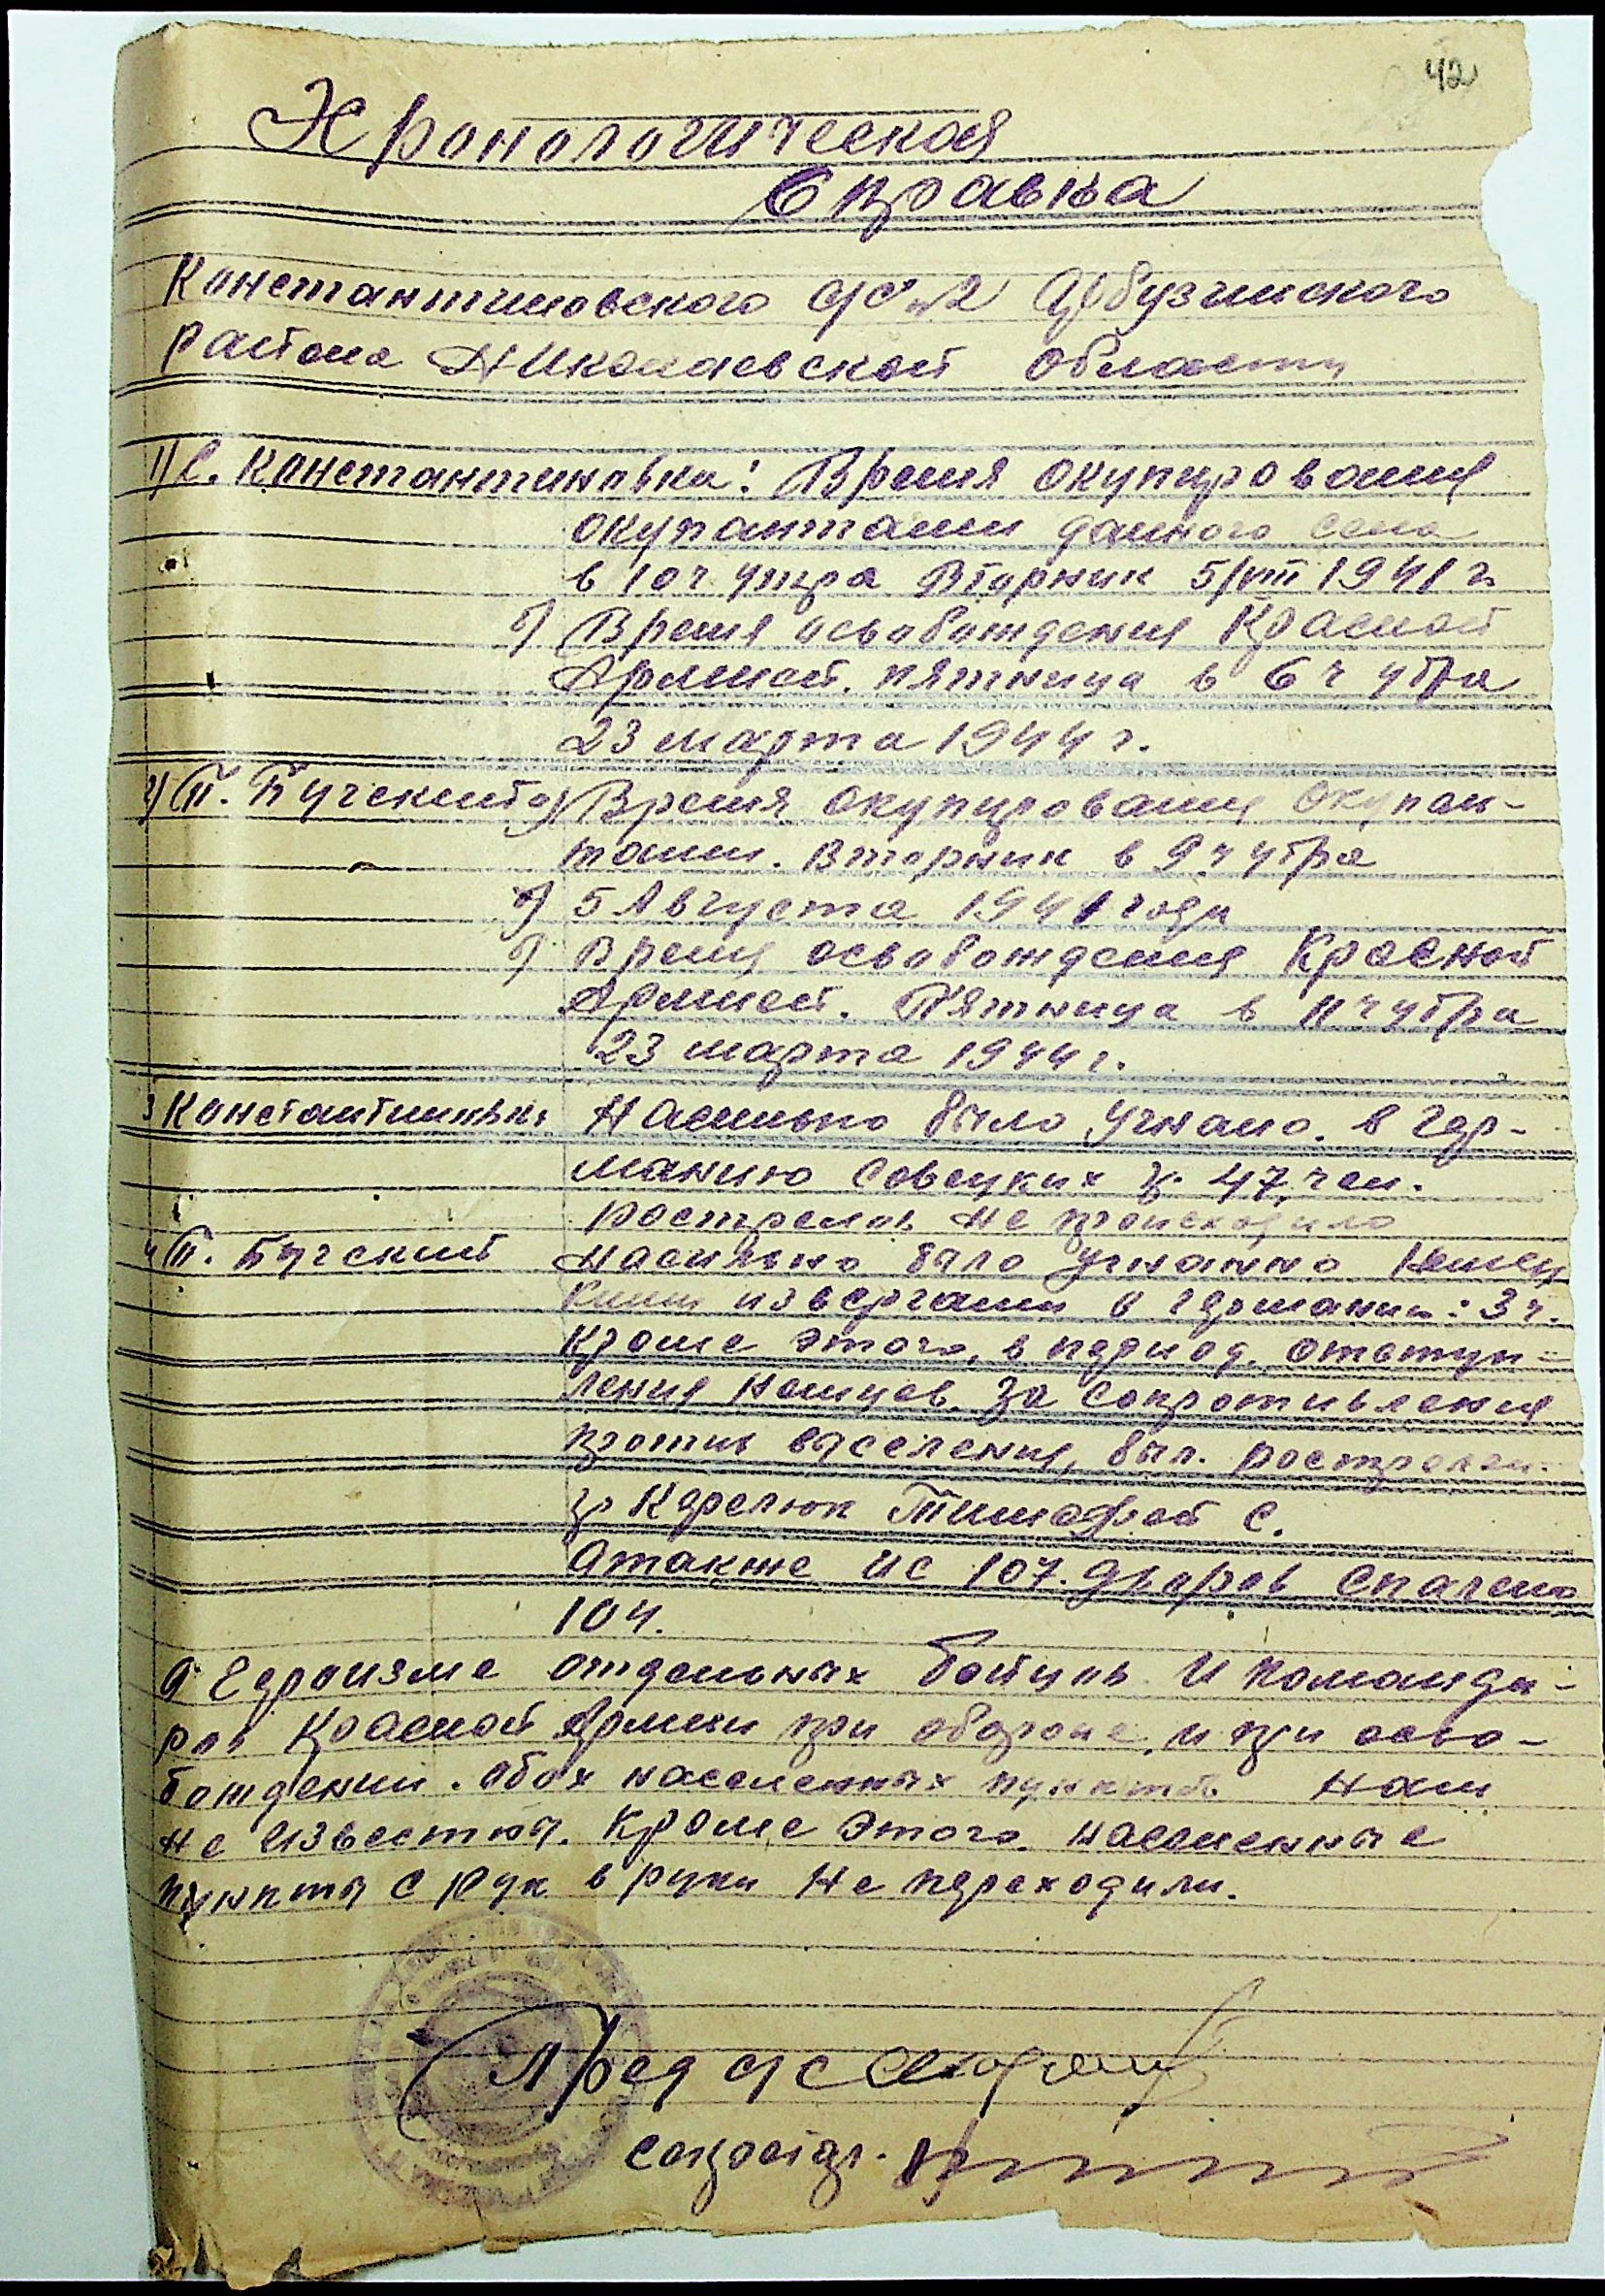 42
Хронологическая
Справка
Константиновского с/с №2 Арбузинского
района Николаевской области
1) С. Константиновка: Время окупирования
окупантами данного села
в 10 ч утра Вторник 5/VIII 1941 г.
б) Время освобождения Красной
Армией. пятница в 6 ч утра
23 марта 1944 г.
2) П. Бугский а) Время окупирования окупан-
тами. Вторник в 9 ч утра
б) 5 Августа 1941 года
б) Время освобождения Красной
Армией. Пятница в 11 ч утра
23 марта 1944 г.
3 Константиновка Насильно было угнано. в Гер-
манию Совецких г. 47 чел.
рострелов не происходило
4 П. Бугский Насильно было угнанно Немец
кими извергами в германию: 3 ч.
Кроме этого, в период. отступ-
ления немцев. За сопротивления
против выселения, был. рострелен.
гр Карелюк Тимофей С.
Атакже ис 107. дворов Спалено
104.
О Героизме отдельных бойцов и команди-
ров Красной Армии при обороне, и при осво-
бождении. обох населенных пунктов нам
не известны. Кроме этого. населенные
пункты с рук в руки не переходили.
Пред с/с
Секретар.